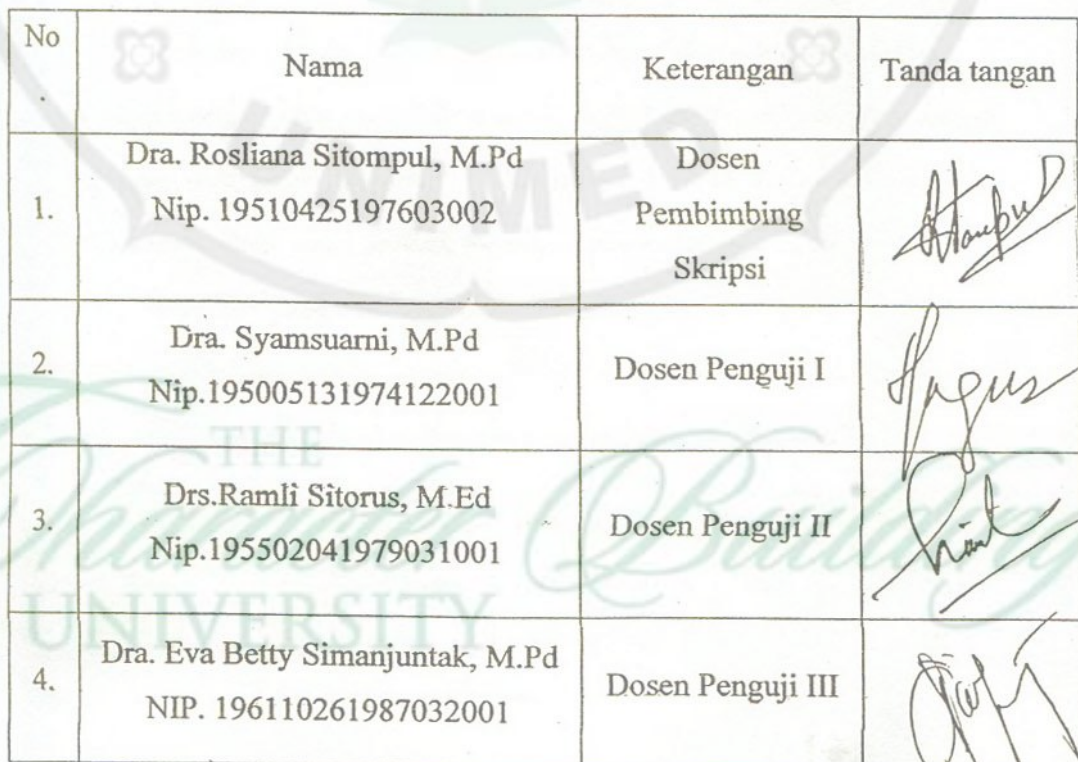 No
.
Nama
Keterangan
Tanda tangan
1.
Dra. Rosliana Sitompul, M.Pd
Nip. 19510425197603002
Dosen
Pembimbing
Skripsi
2.
Dra. Syamsuarni, M.Pd
Nip.195005131974122001
Dosen Penguji I
3.
Drs.Ramli Sitorus, M.Ed
Nip.195502041979031001
Dosen Penguji II
4.
Dra. Eva Betty Simanjuntak, M.Pd
NIP. 196110261987032001
Dosen Penguji III
UNIMED
THE
Character Building
UNIVERSITY